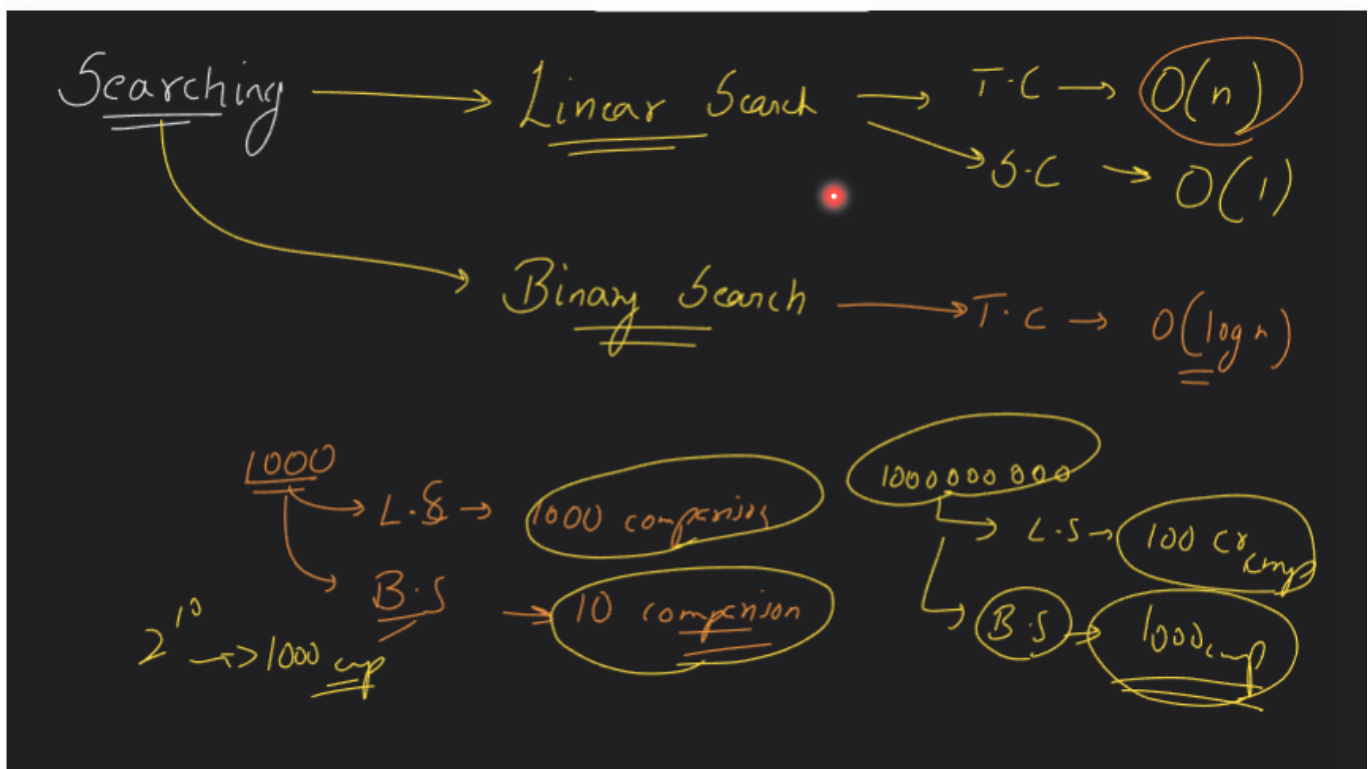 Searching → Linear Search → T.C → O(n)
→ S.C → O(1)
Binary Search → T.C → O(log n)
1000
→ L.S → 1000 comparison
→ B.S → 10 comparison
2^10 → 1000 cmp
1000000000
→ L.S → 100 Cr cmp
→ B.S → 1000 cmp